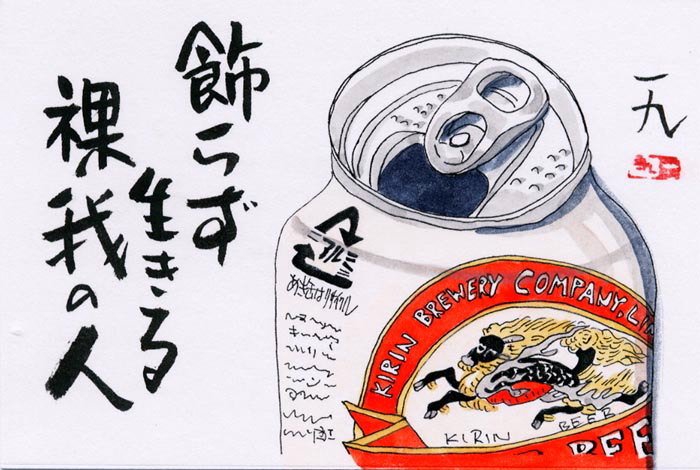 飾らず
生きる
裸我の人
一九
アルミ
あき缶はリサイクル
KIRIN BREWERY COMPANY, LIM
KIRIN
BEER